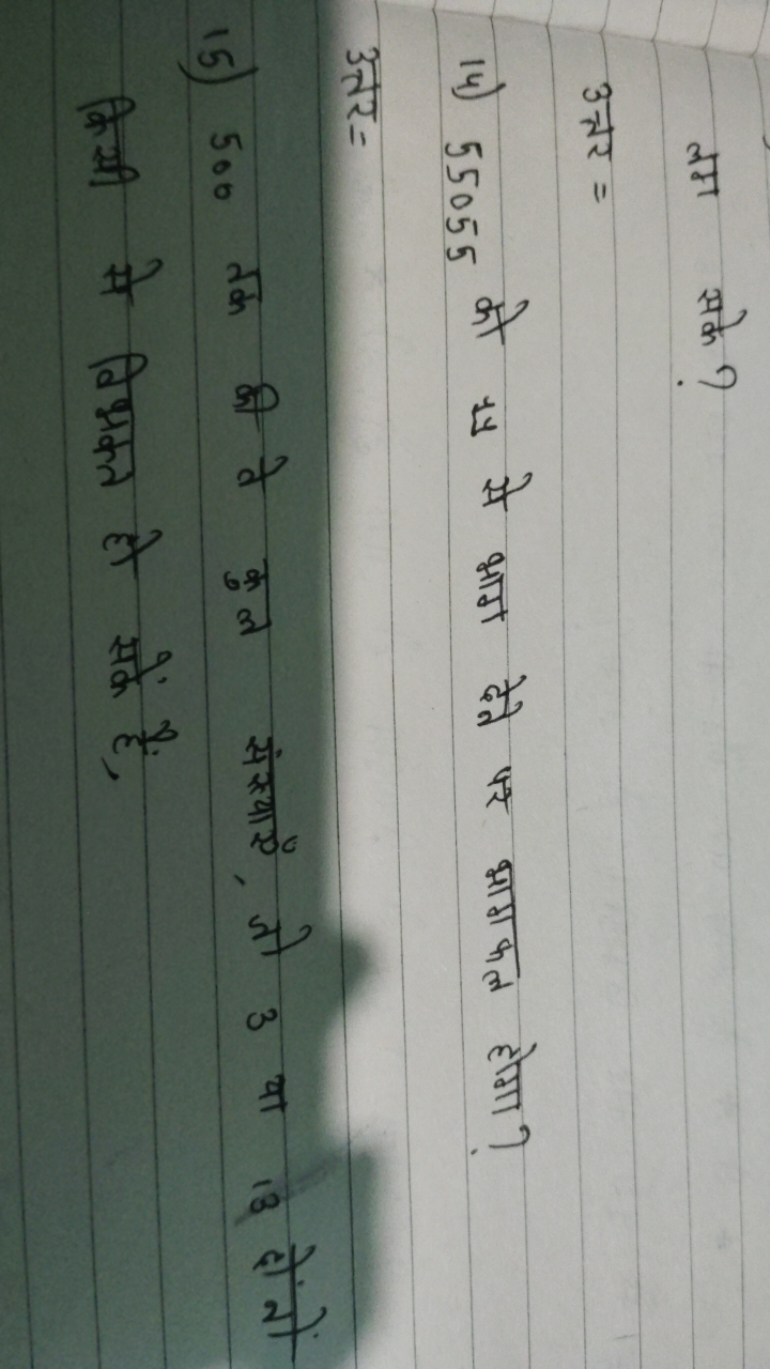 लग सके?
उत्तर =
14) 55055 को से भाग देने पर भागफल होगा?
उत्तर=
15) 500 तक की वे कुल संख्याएँ, जो 3 या 13 दोंनों
किसी से विभक्त हो सकें हैं,